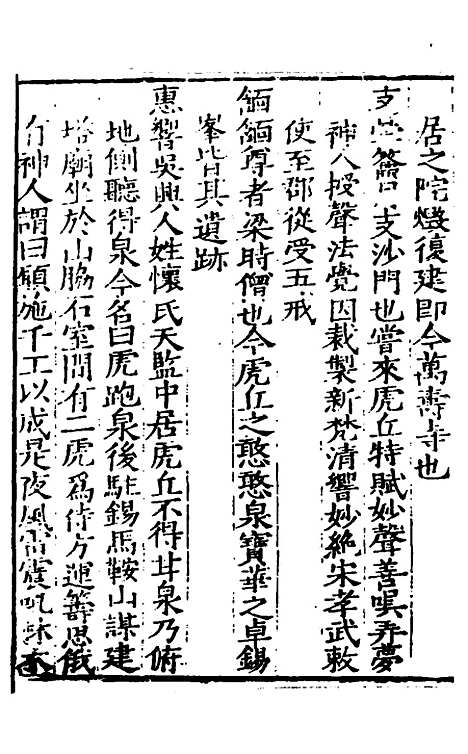 居之院燬復建即今萬壽寺也
支曇籥月支沙門也嘗來虎丘特賦妙聲善唄弄夢
神人授聲法覺因裁製新梵清響妙絕宋孝武敕
使至都從受五戒
緬緬尊者梁時僧也今虎丘之憨憨泉寶華之卓錫
峯皆其遺跡
惠響吳興人姓懷氏天監中居虎丘不得井泉乃俯
地側聽得泉今名曰虎跑泉後駐錫馬鞍山謀建
塔廟坐於山脇石室間有二虎爲侍方運籌思俄
有神人謂曰願施千工以成是夜風雷震吼